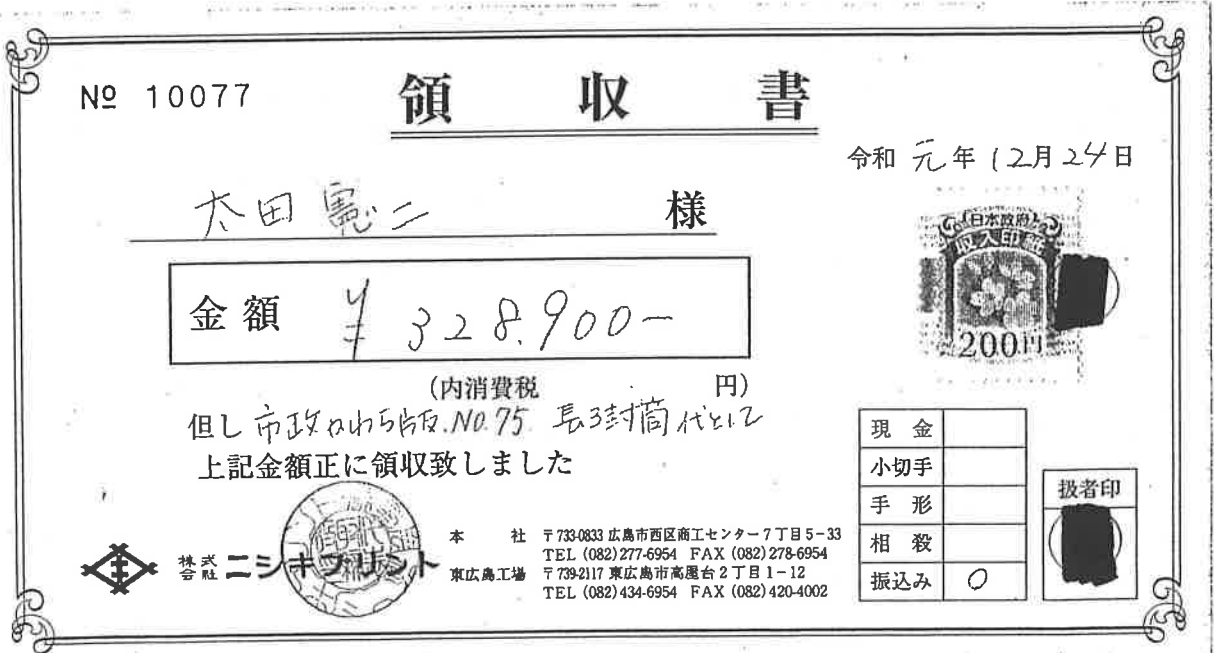 № 10077
領収書
令和 元年 12月 24日
太田憲二 様
日本政府
収入印紙
200円
金額 ¥ 328.900-
(内消費税 円)
但し 市政かわら版.NO.75 長3封筒代として
上記金額正に領収致しました
現金
小切手
手形
相殺
振込み ○
扱者印
株式会社 ニシキプリント
本社 〒733-0833 広島市西区商工センター7丁目5-33
TEL (082)277-6954 FAX (082)278-6954
東広島工場 〒739-2117 東広島市高屋台2丁目1-12
TEL (082)434-6954 FAX (082)420-4002